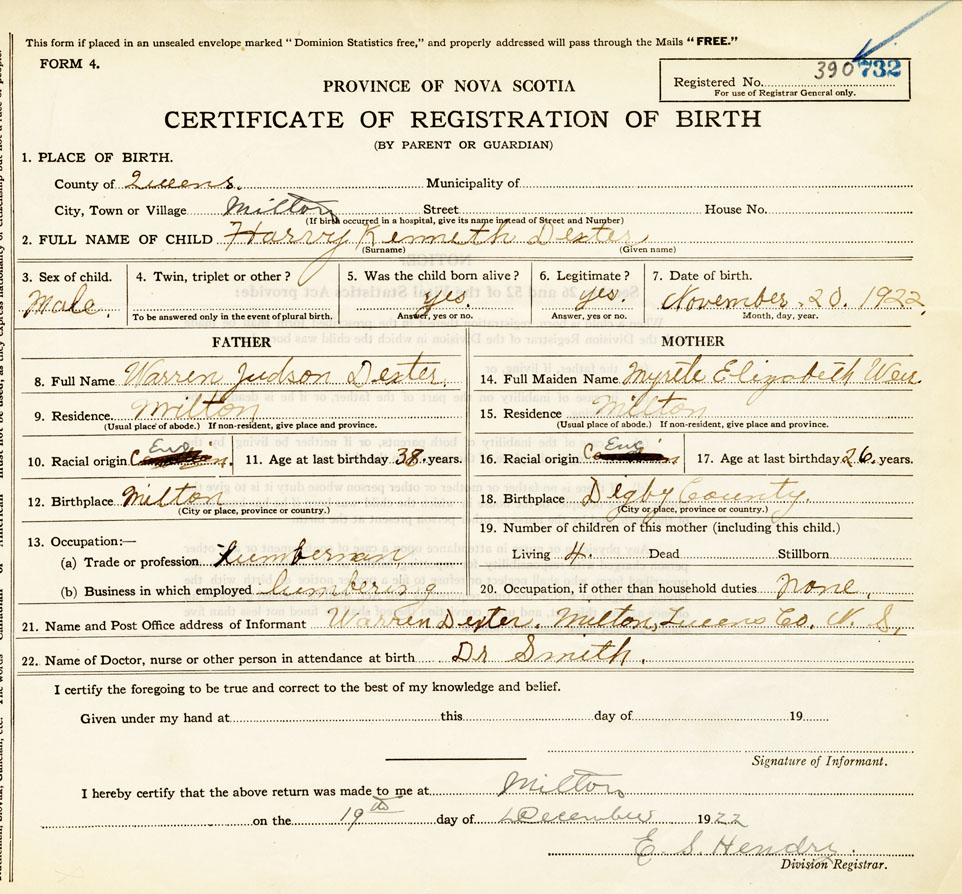 This form if placed in an unsealed envelope marked "Dominion Statistics free," and properly addressed will pass through the Mails "FREE."
FORM 4.
Registered No. 390 732
For use of Registrar General only.
PROVINCE OF NOVA SCOTIA
CERTIFICATE OF REGISTRATION OF BIRTH
(BY PARENT OR GUARDIAN)
1. PLACE OF BIRTH.
County of Queens. Municipality of
City, Town or Village Milton Street House No.
(If birth occurred in a hospital, give its name instead of Street and Number)
2. FULL NAME OF CHILD Harry Kenneth Dexter
(Surname) (Given name)
3. Sex of child. 4. Twin, triplet or other? 5. Was the child born alive? 6. Legitimate? 7. Date of birth.
Male. yes. yes. November. 20. 1922
To be answered only in the event of plural birth. Answer, yes or no. Answer, yes or no. Month, day, year.
FATHER MOTHER
8. Full Name Warren Judson Dexter. 14. Full Maiden Name Myrtle Elizabeth Weir
9. Residence. Milton 15. Residence Milton
(Usual place of abode.) If non-resident, give place and province. (Usual place of abode.) If non-resident, give place and province.
10. Racial origin Eng 11. Age at last birthday 38. years. 16. Racial origin Eng 17. Age at last birthday 26. years.
12. Birthplace Milton 18. Birthplace Digby County.
(City or place, province or country.) (City or place, province or country.)
19. Number of children of this mother (including this child.)
13. Occupation:—
(a) Trade or profession Lumberman, Living 4. Dead Stillborn
(b) Business in which employed lumbering 20. Occupation, if other than household duties none.
21. Name and Post Office address of Informant Warren Dexter. Milton, Queens Co. N. S.
22. Name of Doctor, nurse or other person in attendance at birth Dr Smith.
I certify the foregoing to be true and correct to the best of my knowledge and belief.
Given under my hand at this day of 19
Signature of Informant.
I hereby certify that the above return was made to me at Milton
on the 19th day of December 1922
E. S. Hendry
Division Registrar.